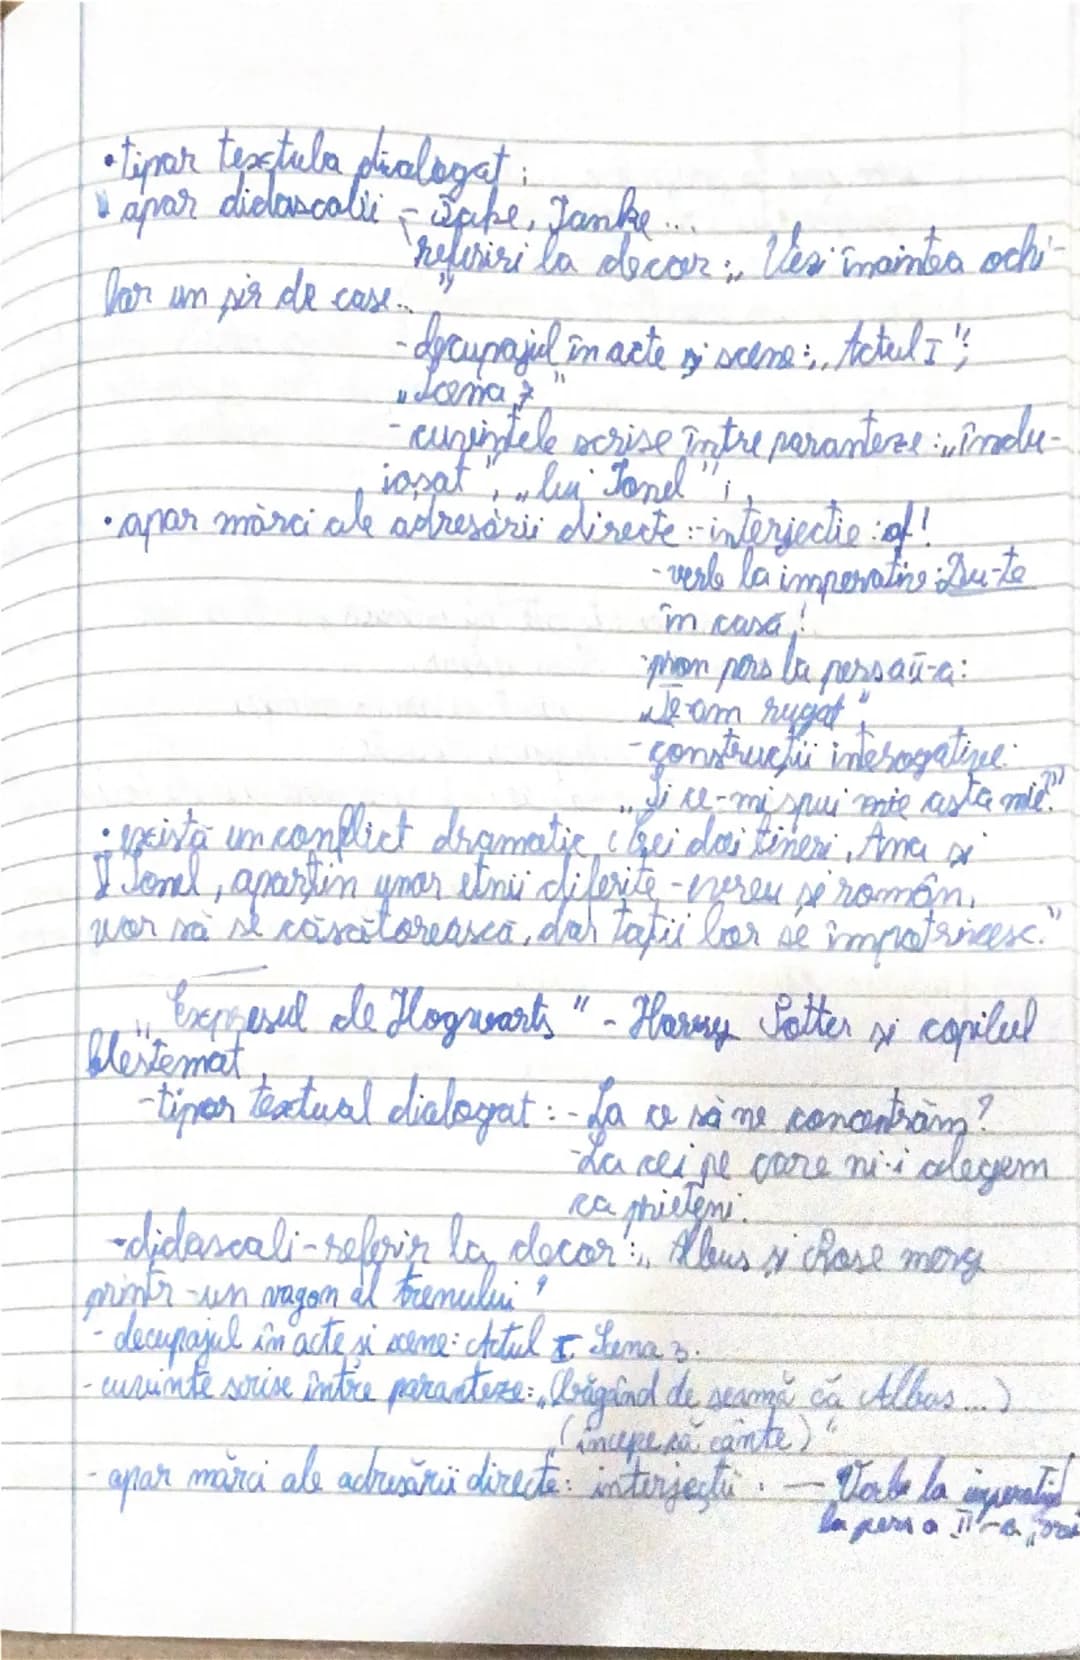 • tipar textula dialogat ;
• apar didascalii - Take, Ianke ...
referiri la decor : „ Vezi înaintea ochi-
lor un șir de case... ”
- decupajul în acte și scene : „ Actul I ” ;
„ Scena 7 ”
- cuvintele scrise între paranteze : „ îndu-
ioșat ” , „ lui Ionel ” ;
• apar mărci ale adresării directe : - interjectie : of !
- verb la imperativ : Du-te
în casă !
- pron pers la pers a II-a :
„ Te-am rugat ”
- construcții interogative :
„ Și ce-mi spui mie asta mie? ”
• există un conflict dramatic ( Cei doi tineri , Ana și
Ionel , aparțin unor etnii diferite - evreu și român,
vor să se căsătorească, dar tații lor se împotrivesc. ”
„ Expresul de Hogwarts ” - Harry Potter și copilul
blestemat
- tipar textual dialogat : - La ce să ne concentrăm ?
- La cei pe care ni-i alegem
ca prieteni.
- didascali - referir la decor : „ Albus și Rose merg
printr-un vagon al trenului ”
- decupajul în acte și scene : Actul I Scena 3.
- cuvinte scrise între paranteze : „ (băgând de seamă că Albus ... )
„ ( începe să cânte ) ”
- apar mărci ale adresării directe : interjecții . — Verbe la imperativ
la pers a II-a „